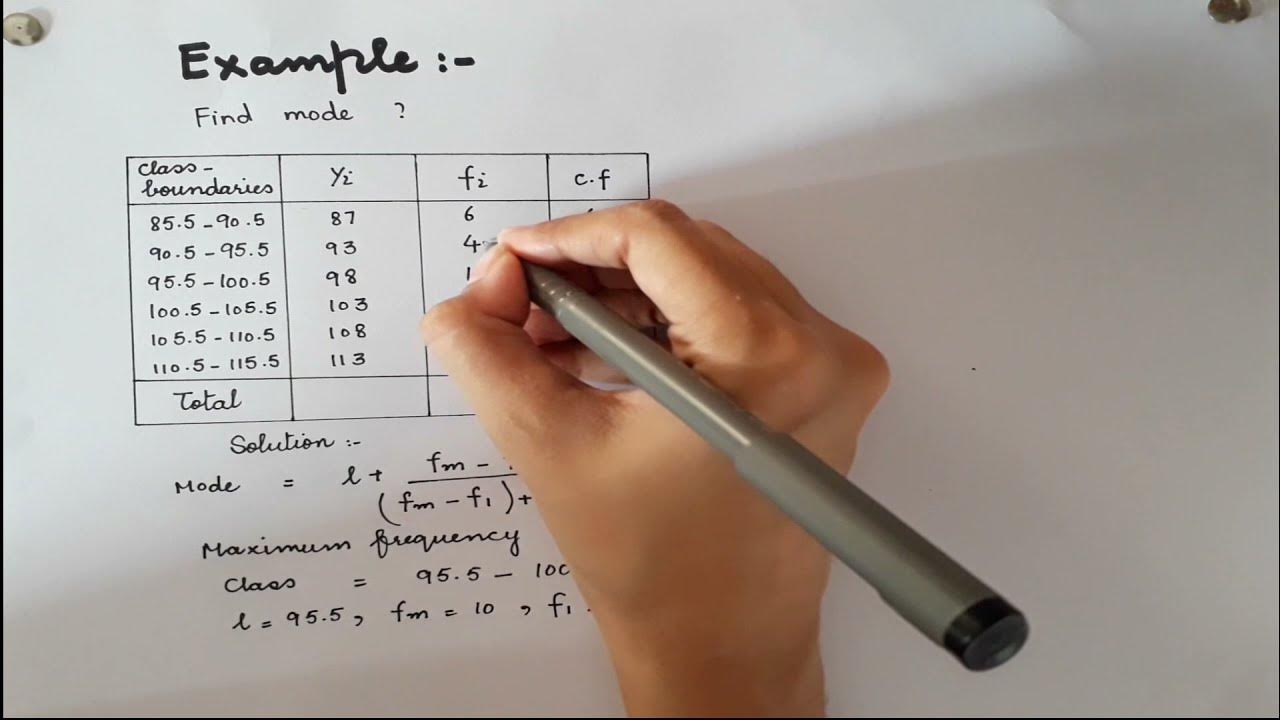 Example :-
Find mode ?
Class-boundaries yi fi c.f
85.5 - 90.5 87 6
90.5 - 95.5 93 4
95.5 - 100.5 98
100.5 - 105.5 103
105.5 - 110.5 108
110.5 - 115.5 113
Total
Solution :-
Mode = l + fm -
(fm - f1) +
Maximum frequency
Class = 95.5 -
l = 95.5 , fm = 10 , f1